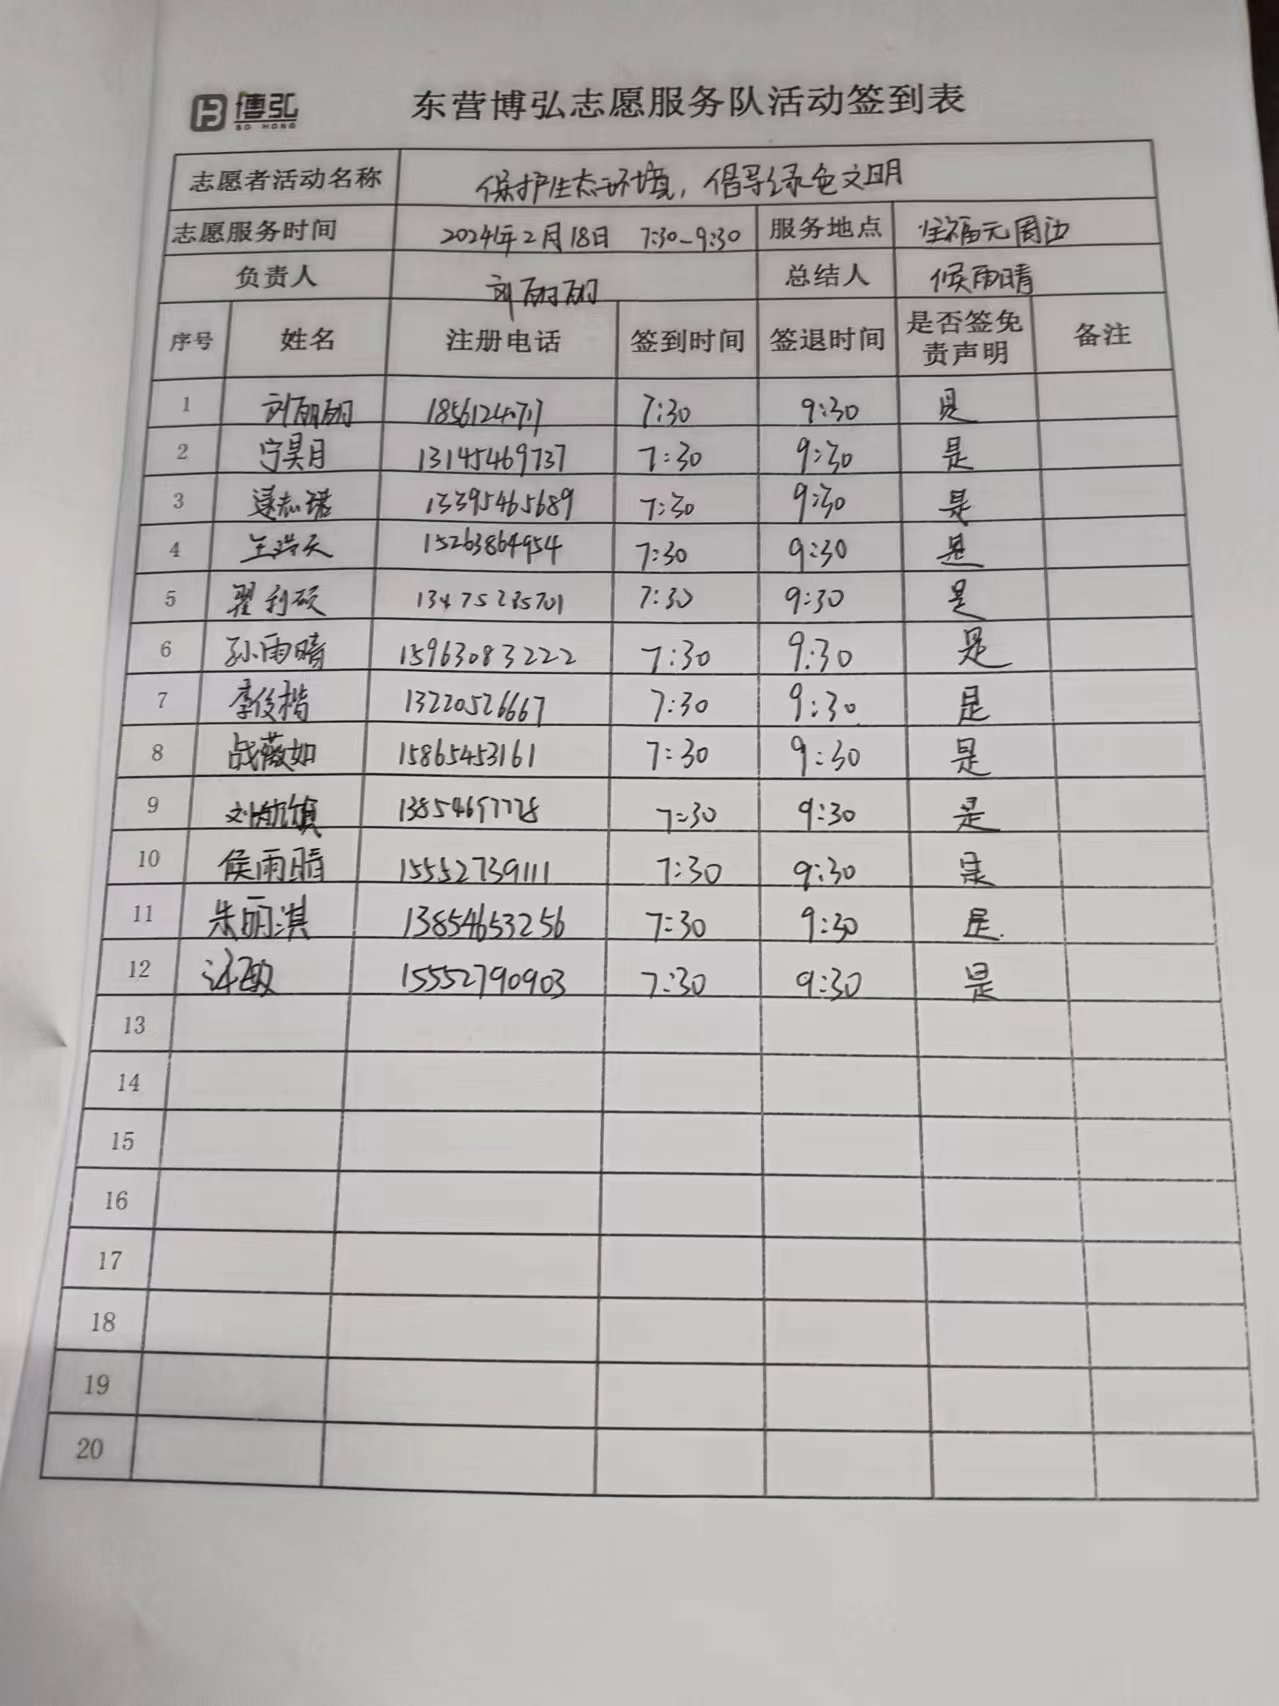 博弘
BO HONG
东营博弘志愿服务队活动签到表
志愿者活动名称 保护生态环境，倡导绿色文明
志愿服务时间 2024年2月18日 7:30-9:30 服务地点 幸福元周边
负责人 刘丽丽 总结人 候雨晴
序号 姓名 注册电话 签到时间 签退时间 是否签免责声明 备注
1 刘丽丽 7:30 9:30 是
2 宁昊月 13145469737 7:30 9:30 是
3 逯志诺 13395465689 7:30 9:30 是
4 王浩天 15263864954 7:30 9:30 是
5 翟利硕 13475285701 7:30 9:30 是
6 孙雨晴 15963083222 7:30 9:30 是
7 李俊楷 13220526667 7:30 9:30 是
8 战薇如 15865453161 7:30 9:30 是
9 刘航 13854697778 7:30 9:30 是
10 侯雨晴 15552739111 7:30 9:30 是
11 朱丽淇 13854653256 7:30 9:30 是
12 许敏 15552790903 7:30 9:30 是
13
14
15
16
17
18
19
20